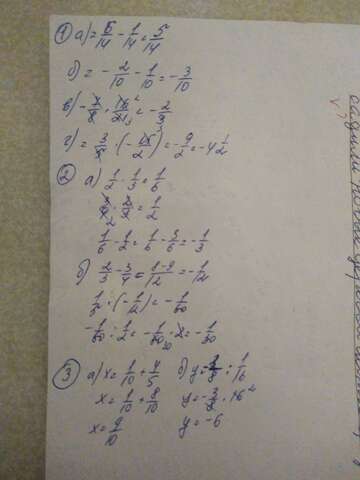 1 а) = 6/14 - 1/14 = 5/14
б) = - 2/10 - 1/10 = - 3/10
в) - 7/8 · 16/21 = - 2/3
г) = 3/5 · (- 15/2) = - 9/2 = - 4 1/2
2 а) 1/2 · 1/3 = 1/6
3/4 · 2/3 = 1/2
1/6 - 1/2 = 1/6 - 3/6 = - 1/3
б) 2/3 - 3/4 = - 1/12
1/5 · (- 1/12) = - 1/60
- 1/60 : 1/2 = - 1/60 · 2 = - 1/30
3 а) x = 1/10 + 4/5 б) y = - 3/8 : 1/16
x = 1/10 + 8/10 y = - 3/8 · 16
x = 9/10 y = -6